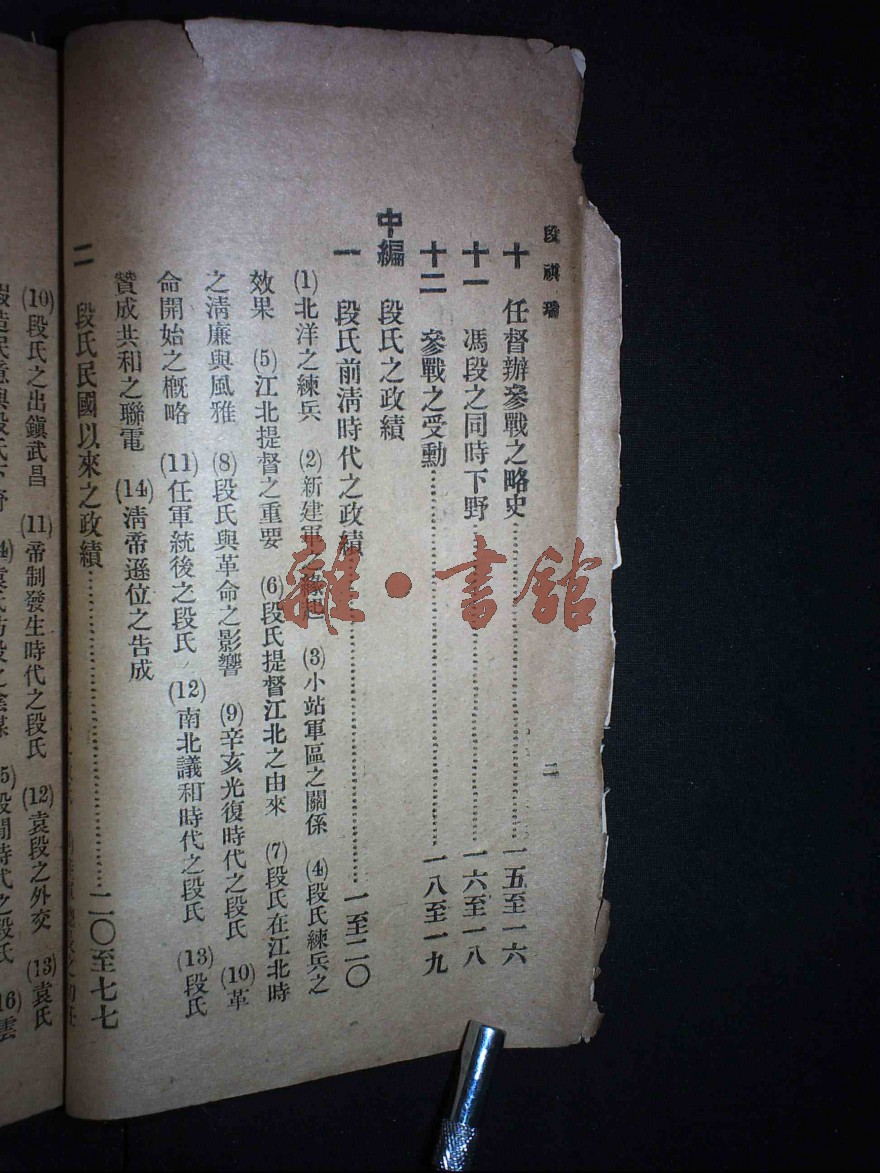 段祺瑞 二
十 任督辦參戰之略史…………一五至一六
十一 馮段之同時下野…………一六至一八
十二 參戰之受勳…………一八至一九
中編 段氏之政績
一 段氏前清時代之政績…………一至二〇
(1)北洋之練兵 (2)新建軍之緣起 (3)小站軍區之關係 (4)段氏練兵之
效果 (5)江北提督之重要 (6)段氏提督江北之由來 (7)段氏在江北時
之清廉與風雅 (8)段氏與革命之影響 (9)辛亥光復時代之段氏 (10)革
命開始之概略 (11)任軍統後之段氏 (12)南北議和時代之段氏 (13)段氏
贊成共和之聯電 (14)清帝遜位之告成
二 段氏民國以來之政績…………二〇至七七
(10)段氏之出鎮武昌 (11)帝制發生時代之段氏 (12)袁段之外交 (13)袁氏
雜·書館